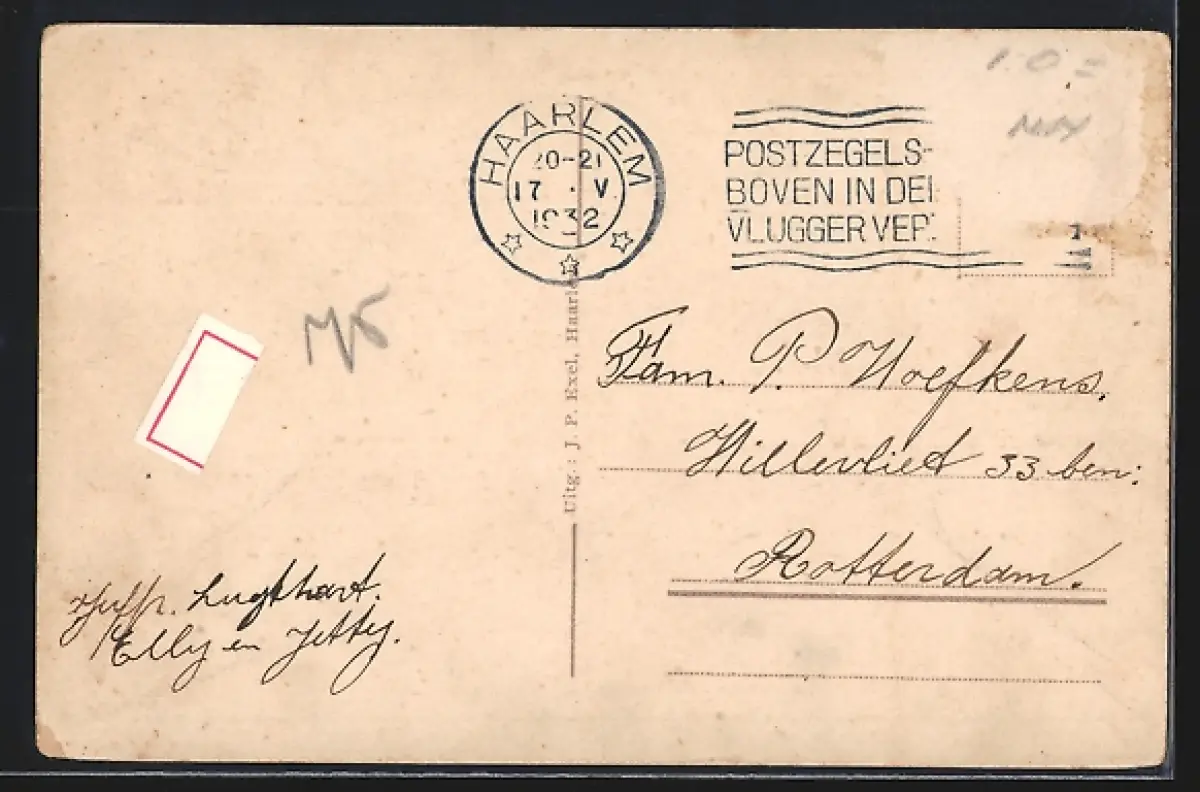 HAARLEM
20-21
17 . V
1932
POSTZEGELS-
BOVEN IN DE
VLUGGER VER
Uitg.: J. P. Exel, Haarle
Fam. P. Hoefkens.
Hillevliet 33 ben:
Rotterdam.
Juffr. Lugthart.
Elly en Jetty.